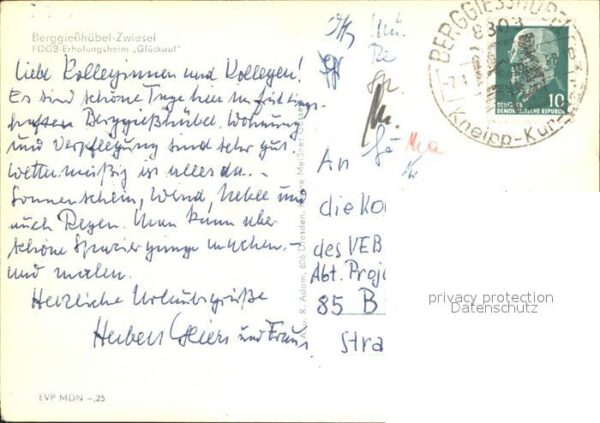 Berggießhübel-Zwiesel
FDGB-Erholungsheim „Glückauf"
Liebe Kolleginnen und Kollegen!
Es sind schöne Tage hier im frühlings-
haften Berggießhübel. Wohnung
und Verpflegung sind sehr gut.
Wettermäßig ist alles da. -
Sonnenschein, Wind, Nebel und
auch Regen. Man kann aber
schöne Spaziergänge machen. -
und malen.
Herzliche Urlaubsgrüße
Herbert und Frau
EVP MDN -,25
R. Adam, 806 Dresden,
An
die Ko
des VEB
Abt. Proj
85 B
Stra
BERGGIESSHÜBEL
8303
Kneipp-Kur
10
DEUTSCHE
DEMOKRATISCHE REPUBLIK
privacy protection
Datenschutz